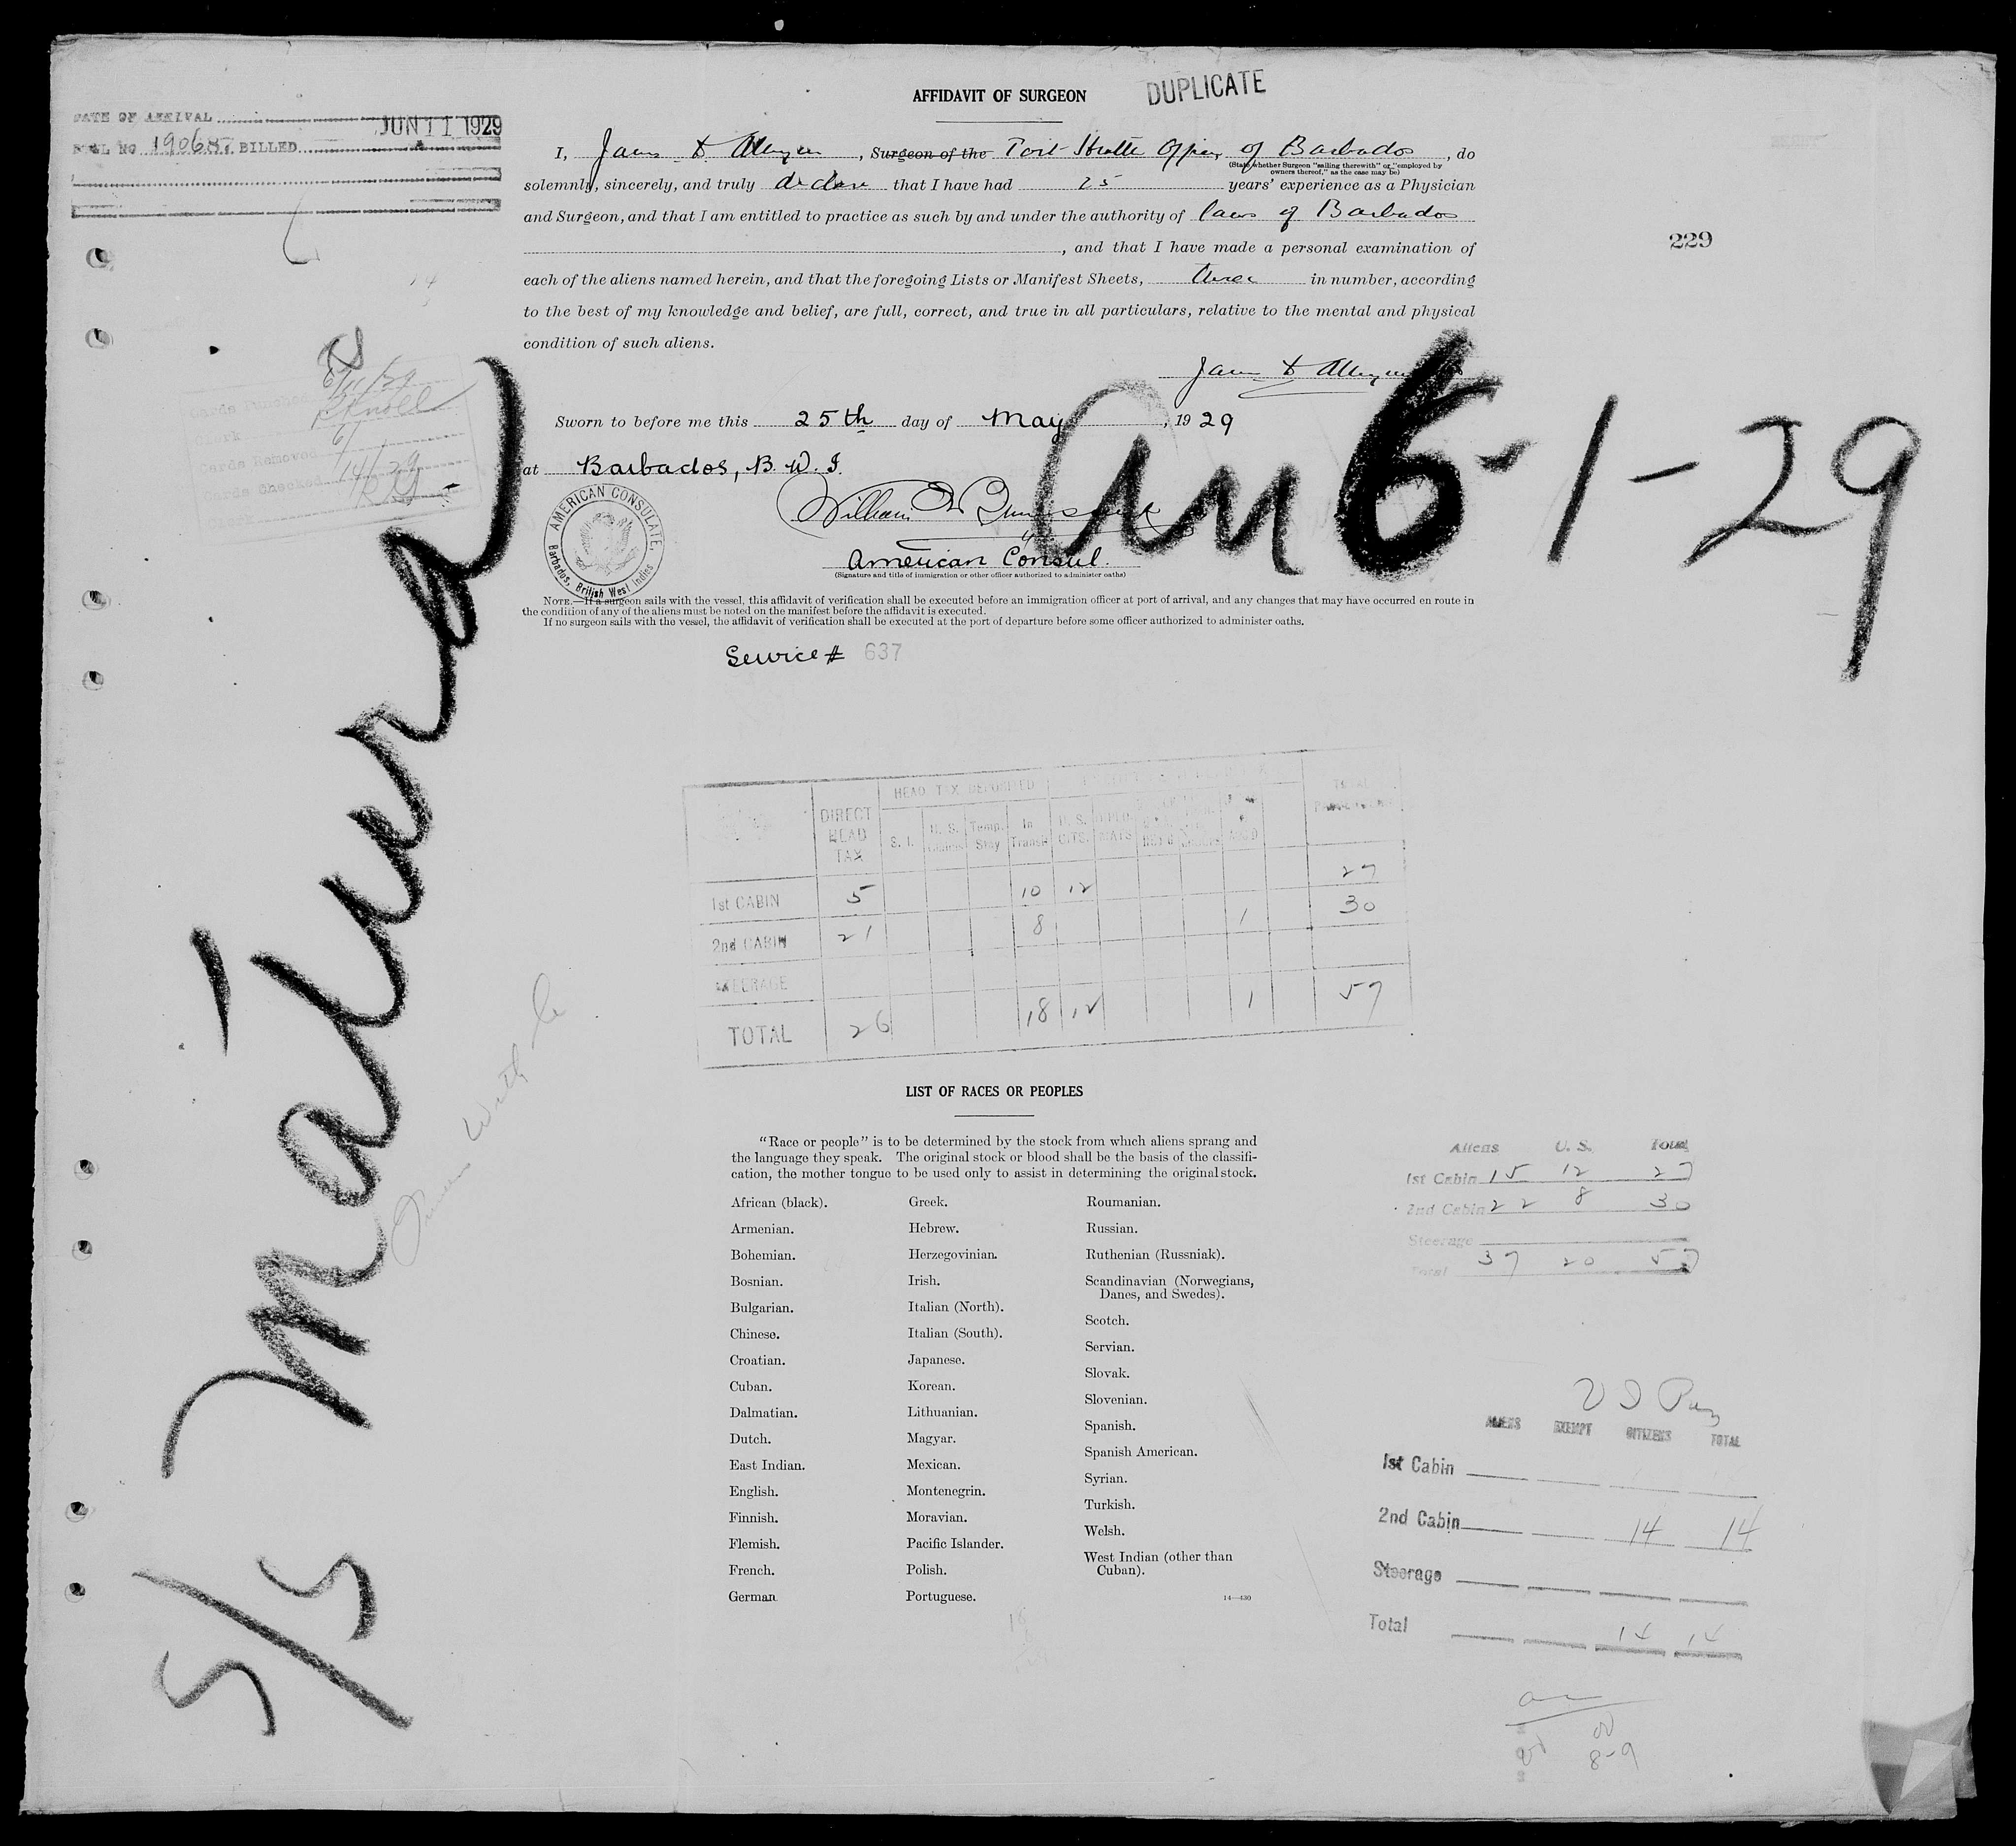 AFFIDAVIT OF SURGEON
DUPLICATE
DATE OF ARRIVAL JUN 11 1929
NO 19065 BILLED
I, , Surgeon of the Port Health Officer of Barbados, do
(State whether Surgeon "sailing therewith" or "employed by owners thereof," as the case may be)
solemnly, sincerely, and truly declare that I have had 25 years' experience as a Physician
and Surgeon, and that I am entitled to practice as such by and under the authority of laws of Barbados
, and that I have made a personal examination of
229
each of the aliens named herein, and that the foregoing Lists or Manifest Sheets, three in number, according
to the best of my knowledge and belief, are full, correct, and true in all particulars, relative to the mental and physical
condition of such aliens.
Cards Punched 6/11/29
Clerk
Cards Removed
Cards Checked
Sworn to before me this 25th day of May, 1929
at Barbados, B. W. I.
6-1-29
AMERICAN CONSULATE,
Barbados, British West Indies
William
American Consul.
(Signature and title of immigration or other officer authorized to administer oaths)
NOTE.—If a surgeon sails with the vessel, this affidavit of verification shall be executed before an immigration officer at port of arrival, and any changes that may have occurred en route in
the condition of any of the aliens must be noted on the manifest before the affidavit is executed.
If no surgeon sails with the vessel, the affidavit of verification shall be executed at the port of departure before some officer authorized to administer oaths.
Service # 637
S/S Matura
HEAD TAX DEPOSITED
DIRECT HEAD TAX S. I. U. S. Temp. Stay In Transit U. S. CITS. TOTAL
1st CABIN 5 10 12 27
2nd CABIN 21 8 1 30
STEERAGE
TOTAL 26 18 12 1 57
LIST OF RACES OR PEOPLES
"Race or people" is to be determined by the stock from which aliens sprang and
the language they speak. The original stock or blood shall be the basis of the classifi-
cation, the mother tongue to be used only to assist in determining the original stock.
African (black). Greek. Roumanian.
Armenian. Hebrew. Russian.
Bohemian. Herzegovinian. Ruthenian (Russniak).
Bosnian. Irish. Scandinavian (Norwegians,
Danes, and Swedes).
Bulgarian. Italian (North).
Scotch.
Chinese. Italian (South).
Servian.
Croatian. Japanese.
Slovak.
Cuban. Korean.
Slovenian.
Dalmatian. Lithuanian.
Spanish.
Dutch. Magyar.
Spanish American.
East Indian. Mexican.
Syrian.
English. Montenegrin.
Turkish.
Finnish. Moravian.
Welsh.
Flemish. Pacific Islander.
West Indian (other than
Cuban).
French. Polish.
German Portuguese.
14—430
Aliens U. S. Total
1st Cabin 15 12 27
2nd Cabin 22 8 30
Steerage
Total 37 20 57
ALIENS EXEMPT CITIZENS TOTAL
1st Cabin
2nd Cabin 14 14
Steerage
Total 14 14
8-9